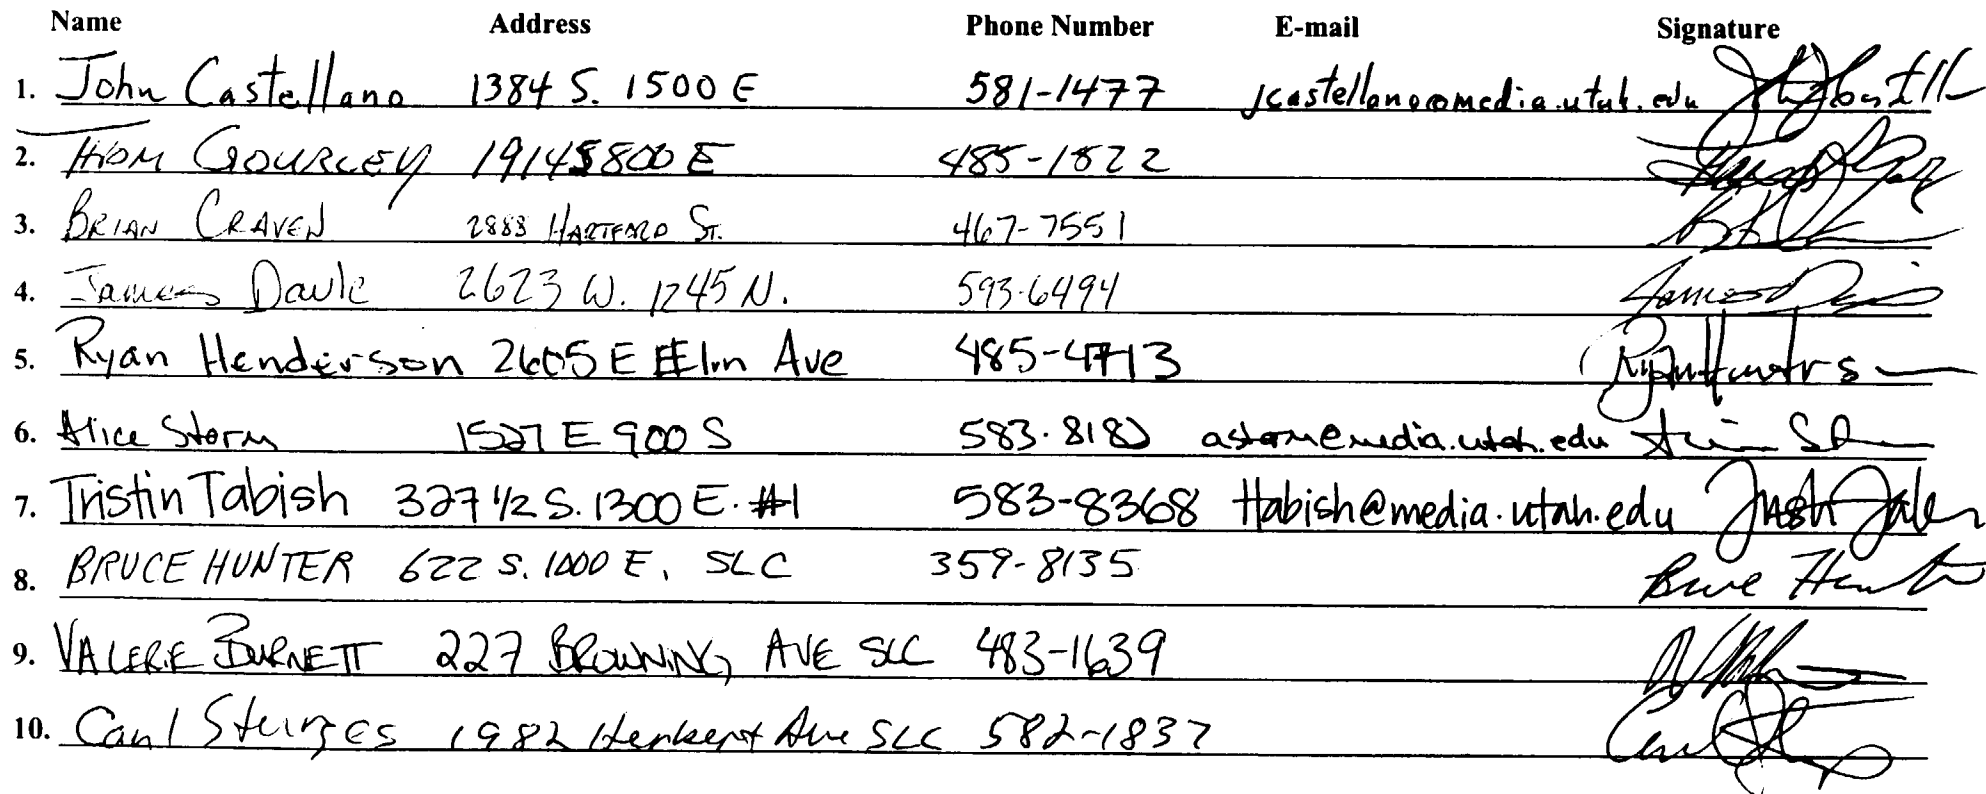 Name Address Phone Number E-mail Signature
1. John Castellano 1384 S. 1500 E 581-1477 jcastellano@media.utah.edu
2. THOM GOURLEY 1914 S 800 E 485-1822
3. BRIAN CRAVEN 2888 HARTFORD ST. 467-7551
4. James 2623 W. 1245 N. 593-6494
5. Ryan Henderson 2605 E Elm Ave 485-4713
6. Alice Storm 1527 E 900 S 583-8182 astorm@media.utah.edu
7. Tristin Tabish 327 1/2 S. 1300 E. #1 583-8368 ttabish@media.utah.edu
8. BRUCE HUNTER 622 S. 1000 E, SLC 359-8135 Bruce Hunter
9. VALERIE BURNETT 227 BROWNING AVE SLC 483-1639
10. Carl Sturges 1982 Ave SLC 582-1837